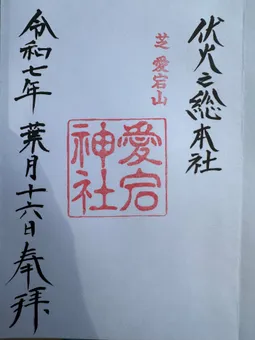 伏火之総本社
芝 愛宕山
愛宕神社
令和七年 葉月十六日 奉拝